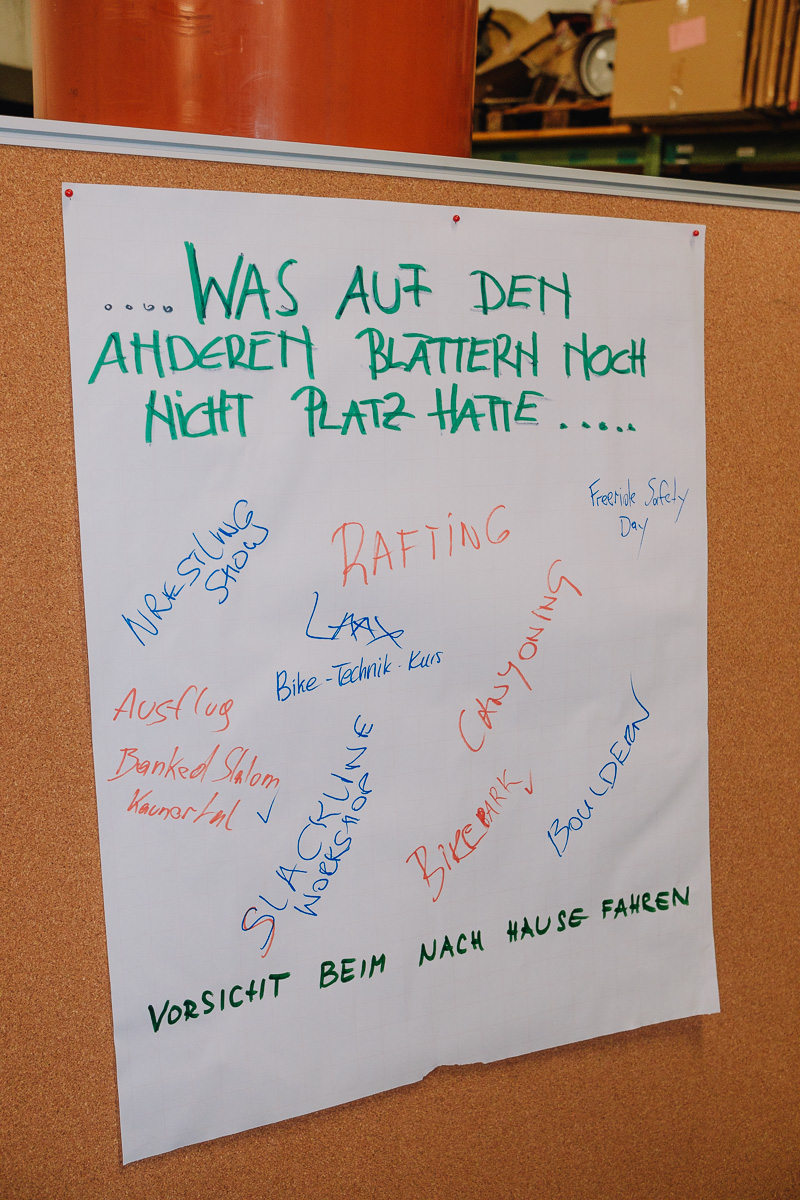 ....WAS AUF DEN
ANDEREN BLÄTTERN NOCH
NICHT PLATZ HATTE.....
Freeride Safety
Day
RAFTING
WRESTLING
SHOW
LAAX
Bike-Technik-Kurs
CANYONING
Ausflug
Banked Slalom
Kaunertal ✓
SLACKLINE
WORKSHOP
BIKEPARK ✓
BOULDERN
VORSICHT BEIM NACH HAUSE FAHREN